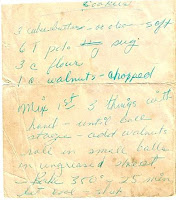 Cookies
3 cubes butter - or oleo - soft
6 T pwd sug
3 c flour
1 c walnuts - chopped
Mix 1st 3 things with
hand - until ball
stages - add walnuts
roll in small balls
on ungreased sheet
- Bake 300° - 25 min
let cool -